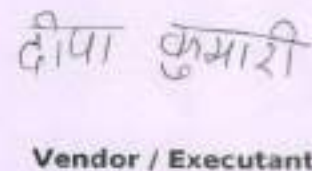 दीपा कुमारी
Vendor / Executant